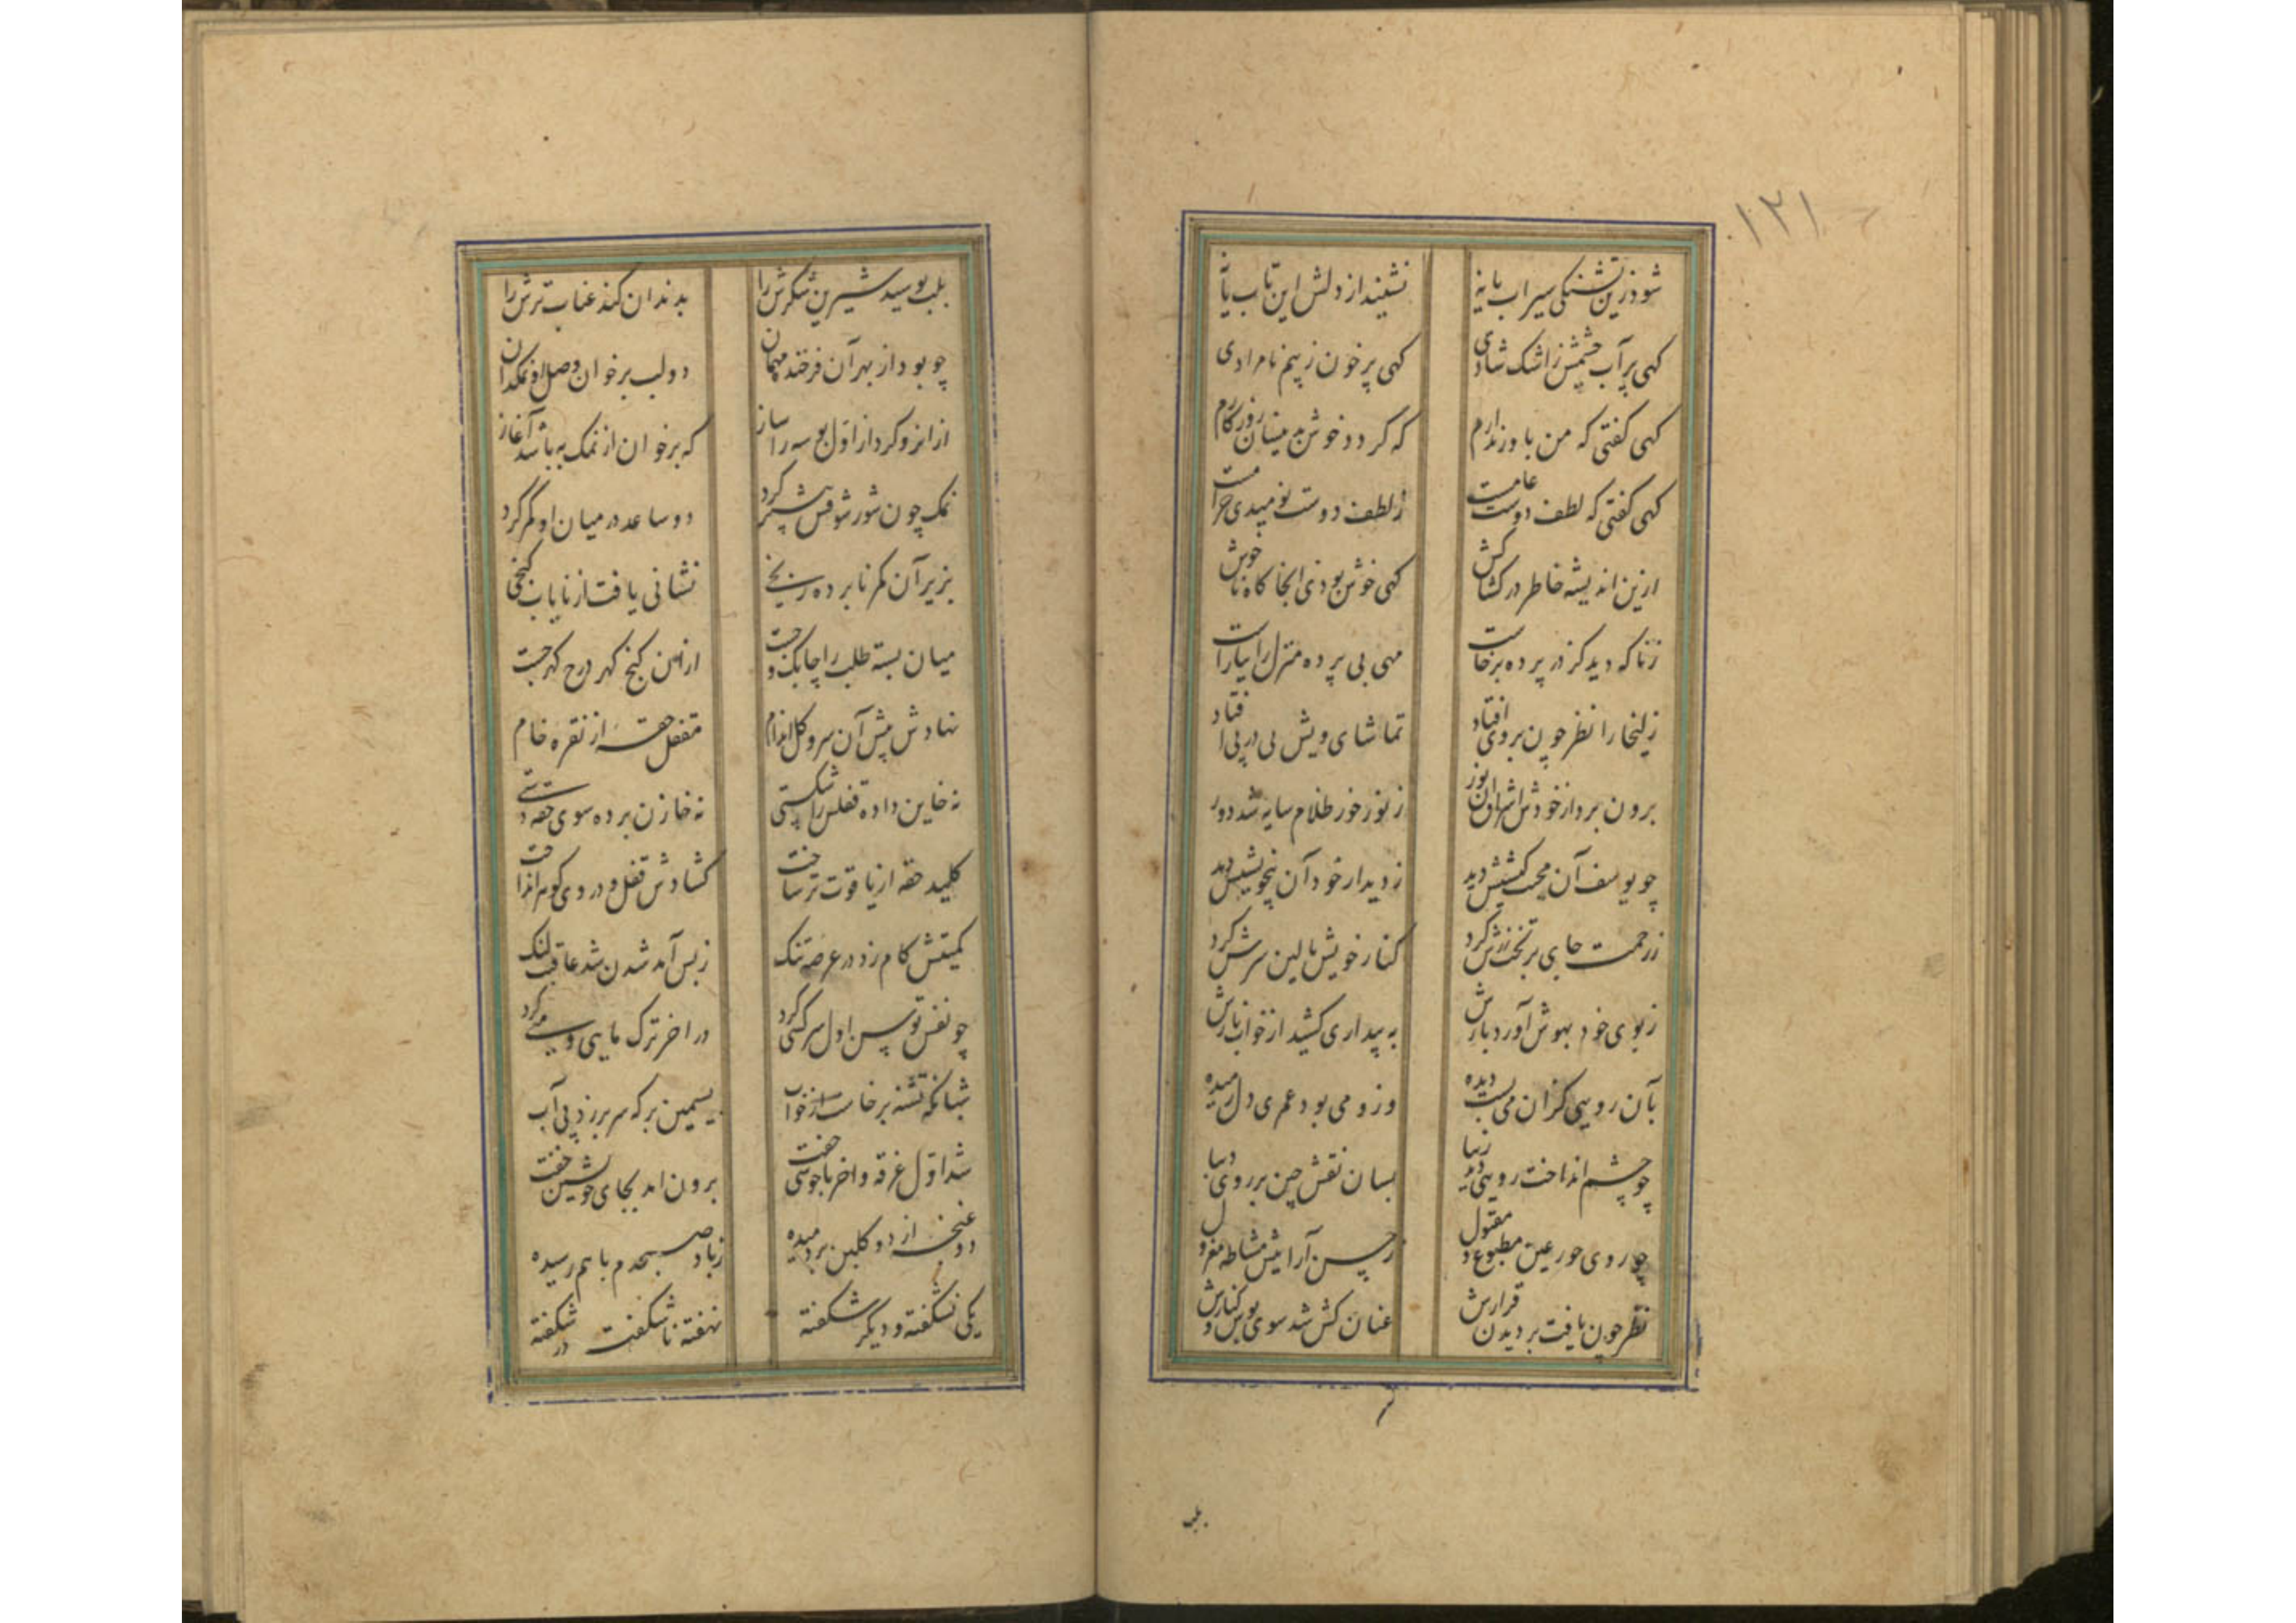 ۱۲۱
شود زین تشنگی سیراب یا نه نشیند از دلش این تاب یا نه
کهی پر آب چشمش ز اشک شادی کهی پر خون ز بیم نامرادی
کهی کفتی که من باور ندارم که کردد خوش بدینسان روزکارم
کهی کفتی که لطف دوست عامست ز لطف دوست نومیدی حرامست
ازین اندیشه خاطر در کشاکش کهی خوش بودی انجا کاه ناخوش
ز ناکه دید کز در پرده برخاست مهی بی پرده منزل را بیاراست
زلیخا را نظر چون بروی افتاد تماشای ویش پی در پی افتاد
برون برد از خودش اشراق آن نور ز نور خور ظلام سایه شد دور
چو یوسف آن محبت کیشیش دید ز دیدار خود آن بیخویشیش دید
ز رحمت جای بر تخت زرش کرد کنار خویش بالین سرش کرد
ز بوی خود بهوش آورد بازش به بیداری کشید از خواب نازش
بآن رویی کزان می بست دیده وزو می بود عمری دل رمیده
چو چشم انداخت رویی دید زیبا بسان نقش چین بر روی دیبا
چو روی حور عین مطبوع و مقبول ز حسن آرایش مشاطه معزول
نظر چون یافت بر دیدن قرارش عنان کش شد سوی بوس و کنارش
بلب
بلب بوسید شیرین شکرش را بدندان کند عناب ترش را
چو بود از بهر آن فرخنده مهمان دو لب بر خوان وصل او نمکدان
ازانرو کرد از اول بوسه را ساز که بر خوان از نمک به باشد آغاز
نمک چون شور شوقش بیشتر کرد دو ساعد در میان او کمر کرد
بزیر آن کمر نابرده رنجی نشانی یافت از نایاب کنجی
میان بسته طلب را چابک و چست ازان کنج کهر درج کهر جست
نهادش پیش آن سرو کل اندام مقفل حقه از نقره خام
نه خازن برده سوی حقه دستی نه خاین داده قفلش را شکستی
کلید حقه از یاقوت تر ساخت کشادش قفل و در وی کوهر انداخت
کمیتش کام زد در عرصه تنک ز بس آمد شدن شد عاقبت لنک
چو نفس توسن اول سرکشی کرد در اخر ترک مایی و منی کرد
شبانکه تشنه برخاست از خواب بسیمین برکه سر برزد پی آب
شد اول غرقه و اخر با خوشی جفت برون امد بجای خویشتن خفت
دو غنچه از دو کلبن بردمیده ز باد صبحدم با هم رسیده
یکی نشکفته و دیکر شکفته نهفته ناشکفت در شکفته